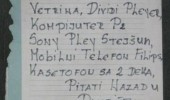 Vetrina, Dividi Pleyer,
Kompijuter P2
Sony Pley Stejšun,
Mobilni Telefon Filips
Kasetofon sa 2 deka,
Pitati nazad u